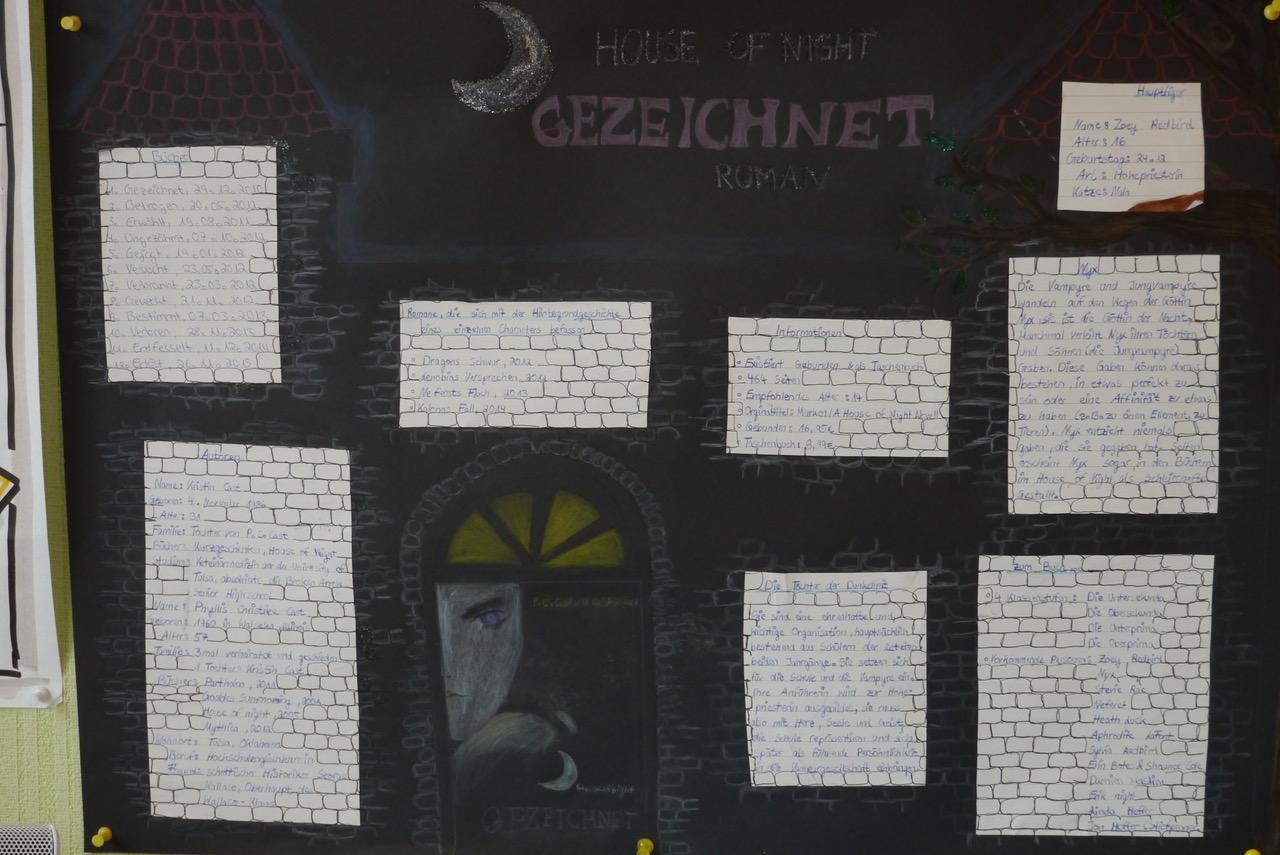 HOUSE OF NIGHT
GEZEICHNET
ROMAN
Hauptfigur
Name: Zoey Redbird
Alter: 16
Geburtstag: 24.12
Art: Hohepriesterin
Katze: Nala
Bücher
1. Gezeichnet, 29.12.2010
2. Betrogen, 20.05.2011
3. Erwählt, 19.08.2011
4. Ungezähmt, 07.10.2011
5. Gejagt, 19.01.2012
6. Versucht, 23.05.2012
7. Verbrannt,
8. Geweckt, 21.11.2012
9. Bestimmt, 07.03.2013
10. Verloren, 28.11.2013
11. Entfesselt, 11.12.2014
12. Erlöst, 26.11.2015
Romane, die sich mit der Hintergrundgeschichte
eines einzelnen Characters befassen
Dragons Schwur, 2012
Lenobias Versprechen,
Neferets Fluch, 2013
Kalonas Fall, 2014
Informationen
Existiert Gebunden & als Taschenbuch
464 Seiten
Empfohlendes Alter: 14
A House of Night Novel
Gebunden: 16,95€
Taschenbuch: 9,99€
Nyx
Die Vampyre und Jungvampyre
wandeln auf den Wegen der Göttin
Nyx sie ist die Göttin der Nacht.
Manchmal verleiht Nyx ihren Töchtern
und Söhnen (die Jungvampyre)
Gaben. Diese Gaben können darin
bestehen, in etwas perfekt zu
sein oder eine Affinität zu etwas
zu haben (z.B. zu einem Element, zu
Tieren). Nyx entzieht niemals
gaben, die sie gegeben hat. Selten
erscheint Nyx sogar, in den Büchern
in House of Night als
Gestallt.
Autoren
Name: Kristin Cast
geboren: 4. November 1986
Alter: 31
Familie: Tochter von P.C. Cast
Bücher: Kurzgeschichten, House of Night
Studium: Veterinärmedizin an der University of
Tulsa, absolvierte die Broken Arrow
Senior Highschool
Name: Phyllis Christine Cast
geboren: 1960 in Watseka,
Alter: 57
Familie: 3mal verheiratet und geschieden
1 Tochter: Kristin Cast
Bücher: Partholon,
Goddess Summoning,
House of night,
Mythica,
Wohnort: Tulsa, Oklahoma
Beruf: Hochschulenglischlehrerin
Freund: schottischer Historiker Seoras
Wallace, Oberhaupt des
Wallace-Klans
House of Night
GEZEICHNET
Die Töchter der Dunkelheit
Sie sind eine ehrenhafte und
wichtige Organisation, hauptsächlich
bestehend aus Schülern der letzten
beiden Jahrgänge. Sie setzen sich
für die Schule und die Vampyre ein.
Ihre Anführerin wird zur Hohe-
priesterin ausgebildet, sie muss
also mit Herz, Seele und Geist
die Schule repräsentieren und sich
später als führende Persönlichkeit
in die Vampyrgesellschaft einbringen
Zum Buch
4 Klassenstufen: Die Untersekunda
Die Obersekunda
Die Unterprima
Die Oberprima
Vorkommende Personen: Zoey Redbird
Nyx
Stevie Rae
Neferet
Heath Luck
Aphrodite
Sylvia Redbird
Erin Bates & Shaunee Cole
Damien Maslin
Erik night
Linda Heffer